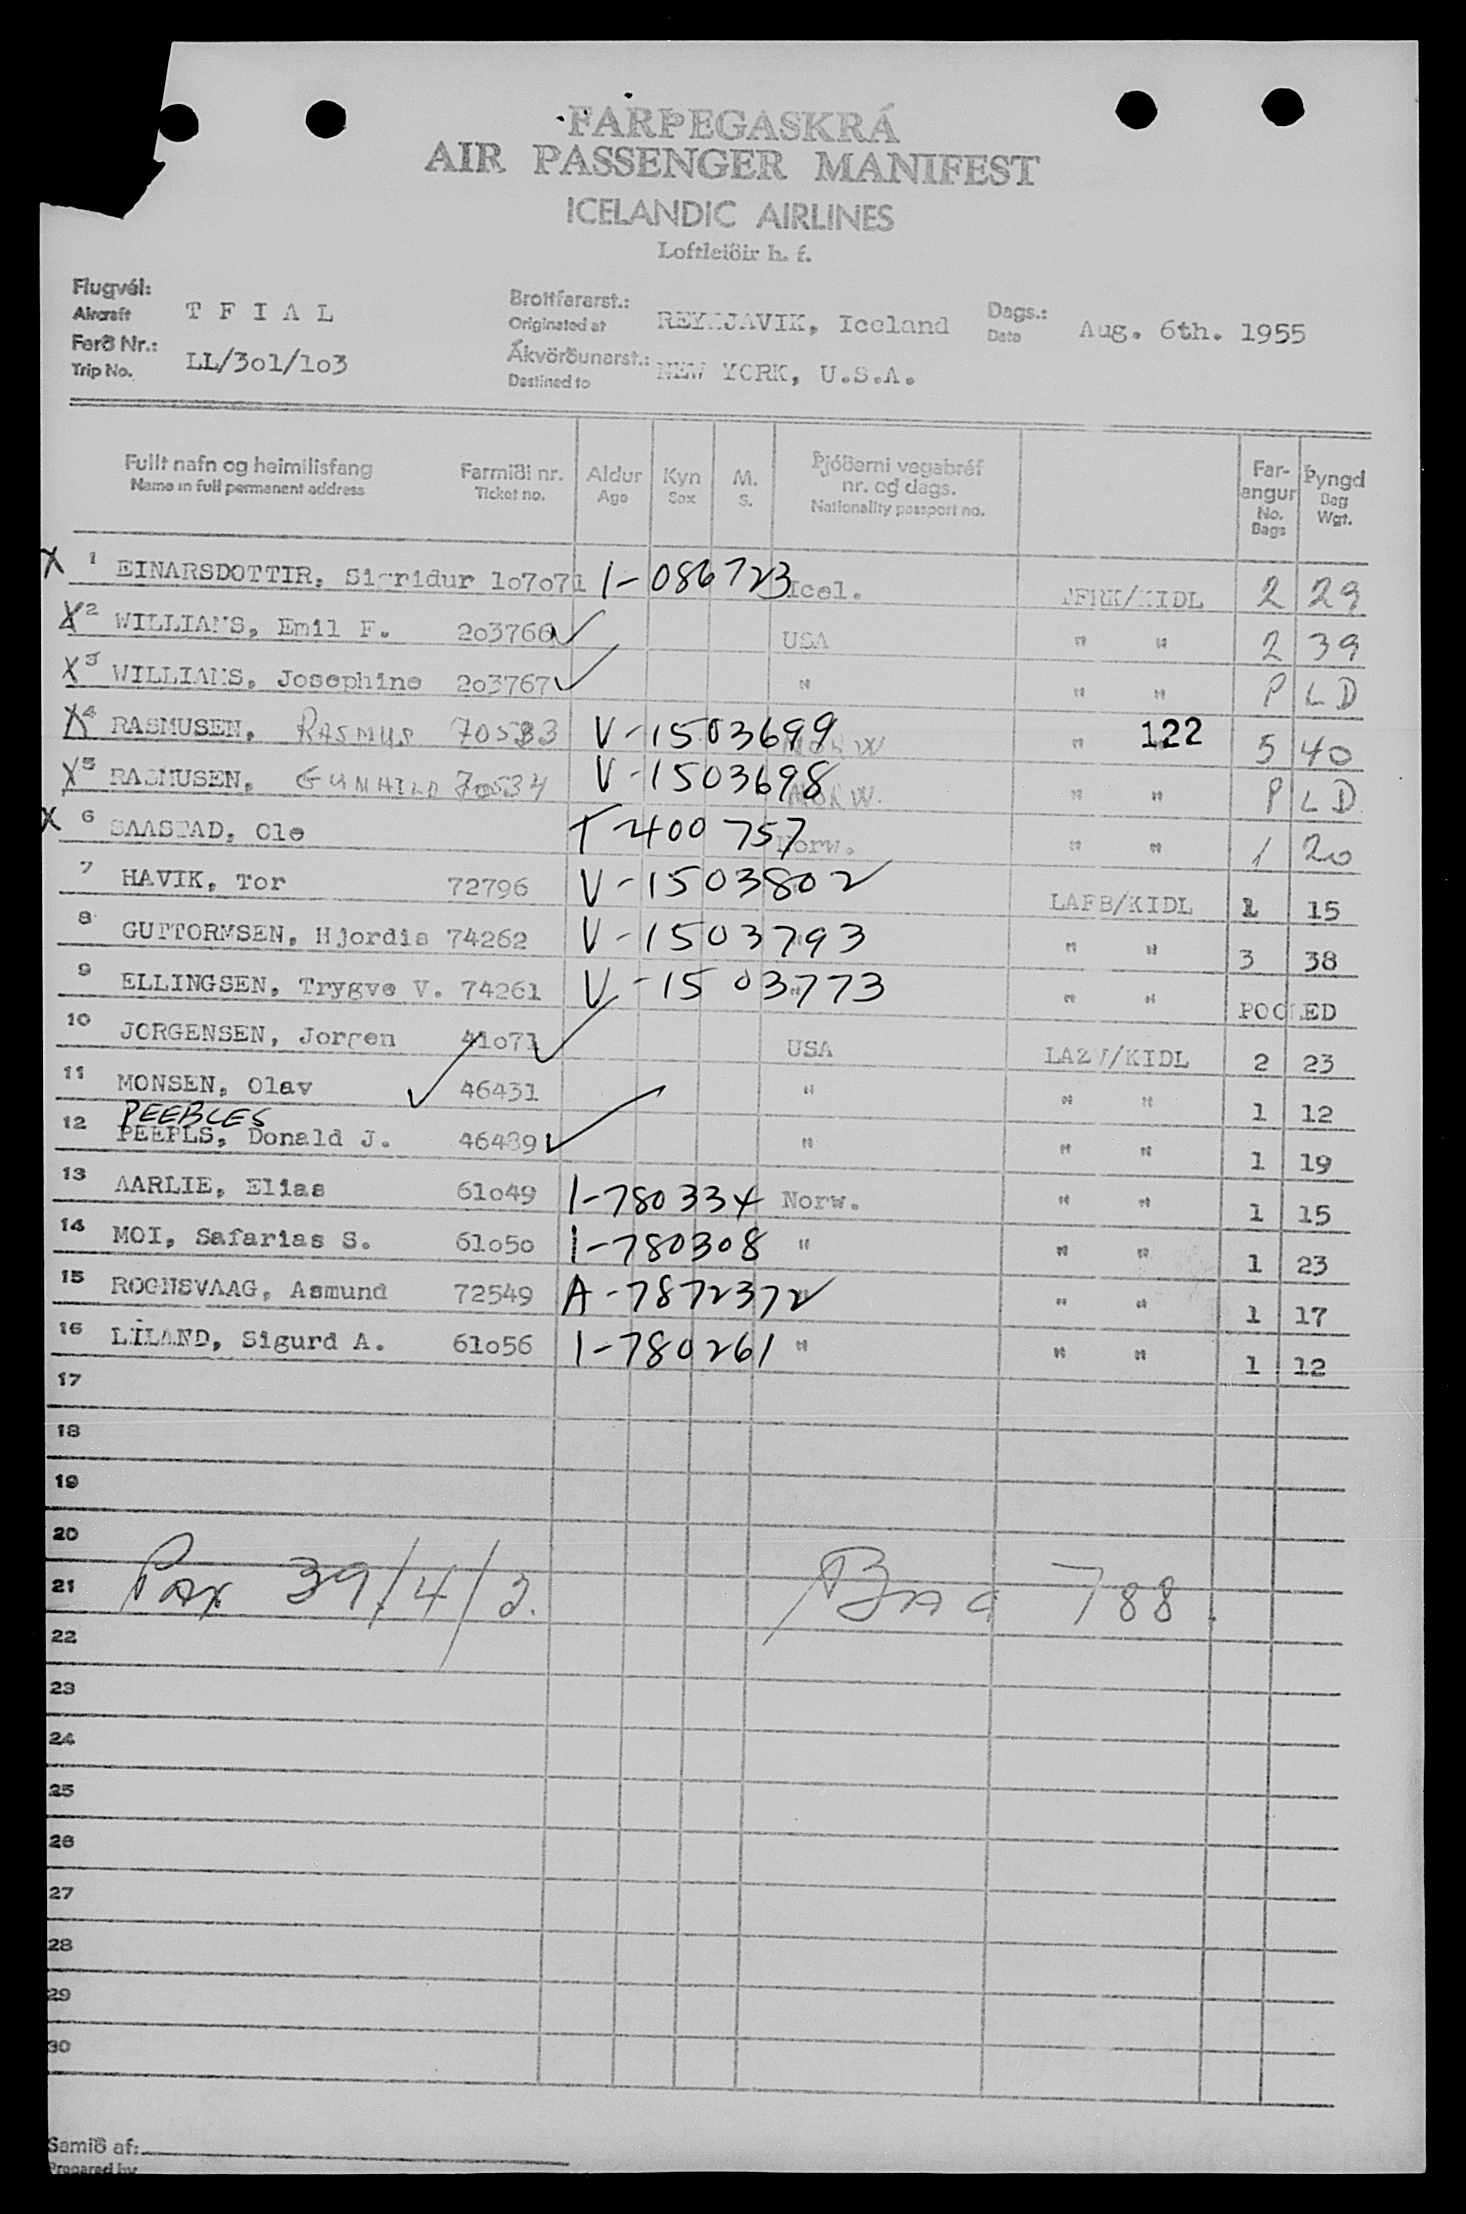 FARÞEGASKRÁ
AIR PASSENGER MANIFEST
ICELANDIC AIRLINES
Loftleiðir h. f.
Flugvél:
Aircraft T F I A L
Ferð Nr.:
Trip No. LL/3o1/1o3
Brottfararst.:
Originated at REYKJAVIK, Iceland
Ákvörðunarst.:
Destined to NEW YORK, U.S.A.
Dags.:
Date Aug. 6th. 1955
Fullt nafn og heimilisfang
Name in full permanent address
Farmiði nr.
Ticket no.
Aldur
Age
Kyn
Sex
M.
S.
Þjóðerni vegabréf
nr. og dags.
Nationality passport no.
Far-
angur
No.
Bags
Þyngd
Bag
Wgt.
X 1 EINARSDOTTIR, Sigridur 1o7o71 1-086723 Icel. TFRK/KIDL 2 29
X 2 WILLIAMS, Emil F. 2o3766 ✓ USA " " 2 39
X 3 WILLIAMS, Josephine 2o3767 ✓ " " " P L D
X 4 RASMUSEN, RASMUS 70533 V-1503699 NORW " " 122 5 40
X 5 RASMUSEN, GUNHILD 70534 V-1503698 NORW. " " P L D
X 6 SAASTAD, Ole T-400757 Norw. " " 1 20
7 HAVIK, Tor 72796 V-1503802 LAFB/KIDL 1 15
8 GUTTORMSEN, Hjordis 74262 V-1503793 " " " 3 38
9 ELLINGSEN, Trygve V. 74261 V-1503773 " " " POOLED
10 JORGENSEN, Jorgen 41o71 ✓ USA LAZV/KIDL 2 23
11 MONSEN, Olav ✓ 46431 " " " 1 12
PEEBLES
12 PEEPLS, Donald J. 46439 ✓ " " " 1 19
13 AARLIE, Elias 61o49 1-780334 Norw. " " 1 15
14 MOI, Safarias S. 61o5o 1-780308 " " " 1 23
15 ROGNSVAAG, Asmund 72549 A-7872372 " " " 1 17
16 LILAND, Sigurd A. 61o56 1-780261 " " " 1 12
17
18
19
20
21 Pax 39/4/2. Bag 788.
22
23
24
25
26
27
28
29
30
Samið af:
Prepared by